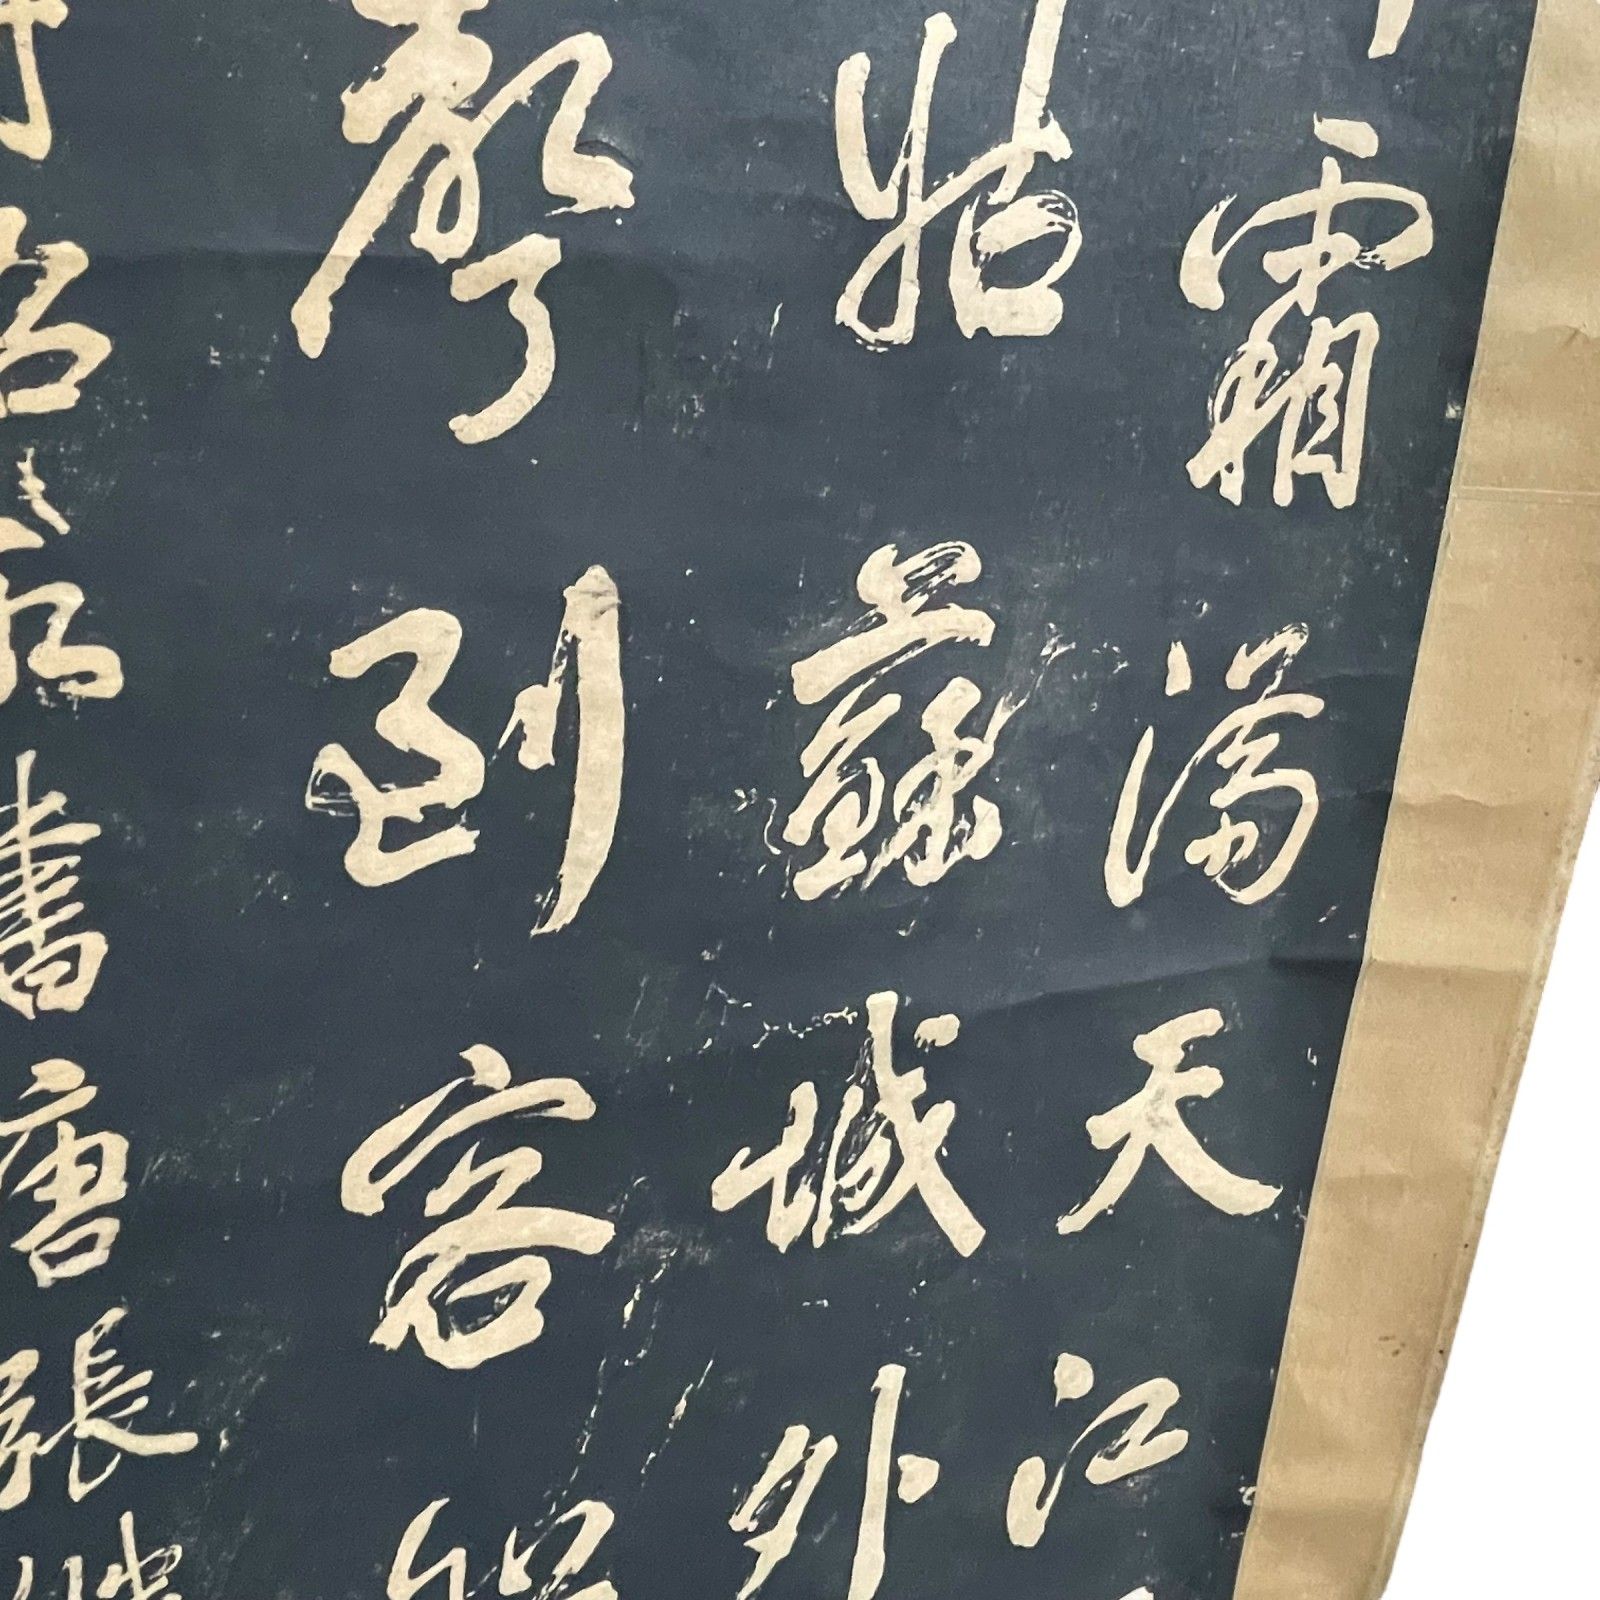 霜滿天江
姑蘇城外
聲到客船
詔所書唐張